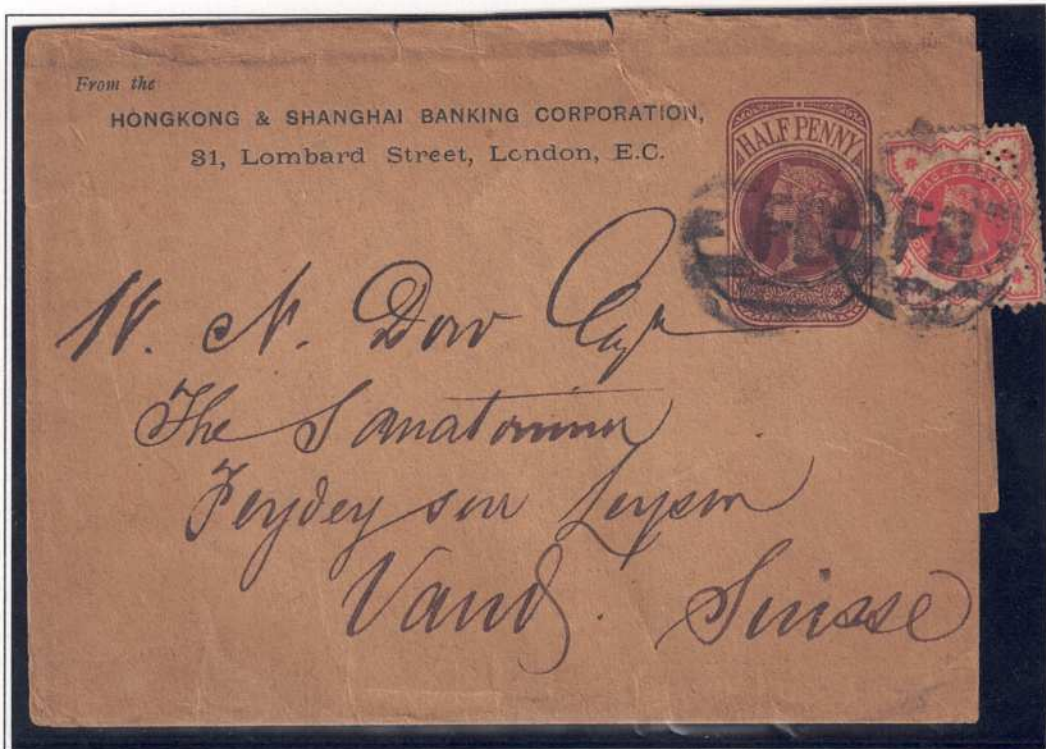 From the
HONGKONG & SHANGHAI BANKING CORPORATION,
31, Lombard Street, London, E.C.
HALFPENNY
W. N. Dow Esqr
The Sanatorium
Feydey sur Leysin
Vaud. Suisse
FB
FB